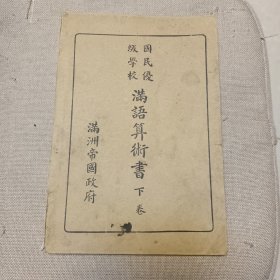 國民優
級學校
滿語算術書 下卷
滿洲帝國政府